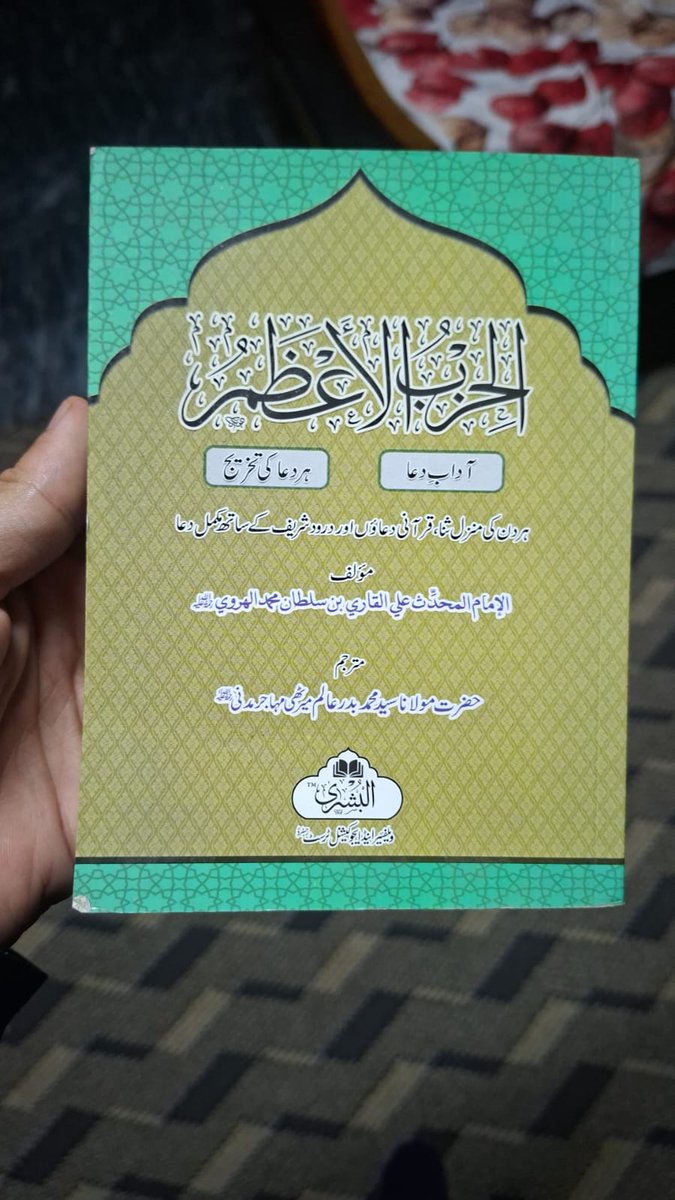 الحِزْبُ الأَعْظَمُ
آدابِ دعا
ہر دعا کی تخریج
ہر دن کی منزل ثنا، قرآنی دعاؤں اور درود شریف کے ساتھ مکمل دعا
مؤلف
الإمام المحدّث علي القاري بن سلطان محمد الهروي رحمه الله
مترجم
حضرت مولانا سید محمد بدر عالم میرٹھی مہاجر مدنی رحمه الله
البشرى TM
ویلفیئر اینڈ ایجوکیشنل ٹرسٹ